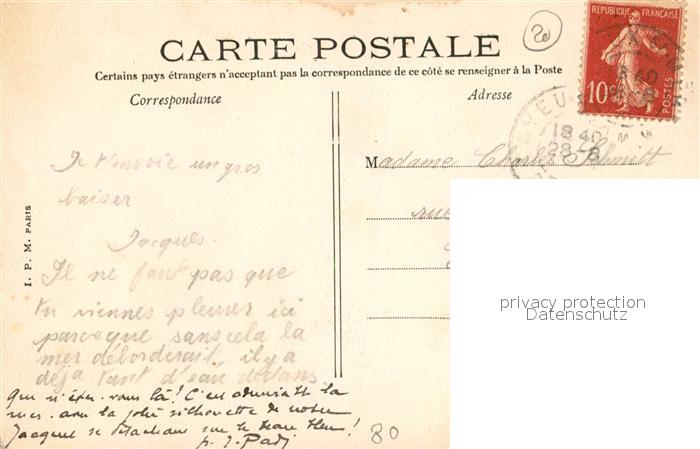 CARTE POSTALE
Certains pays étrangers n'acceptant pas la correspondance de ce côté se renseigner à la Poste
Correspondance
Adresse
REPUBLIQUE FRANÇAISE
10c
POSTES
18 40
28 - 8
Madame Charles Schmitt
rue
privacy protection
Datenschutz
I. P. M. PARIS
Je t'envoie un gros
baiser
Jacques.
Il ne faut pas que
tu viennes pleurer ici
parceque sans cela la
mer déborderait, il y a
déjà tant d'eau dedans
Que n'êtes-vous là! C'est admirable la
mer avec la jolie silhouette de notre
Jacques se détachant sur le beau bleu!
80